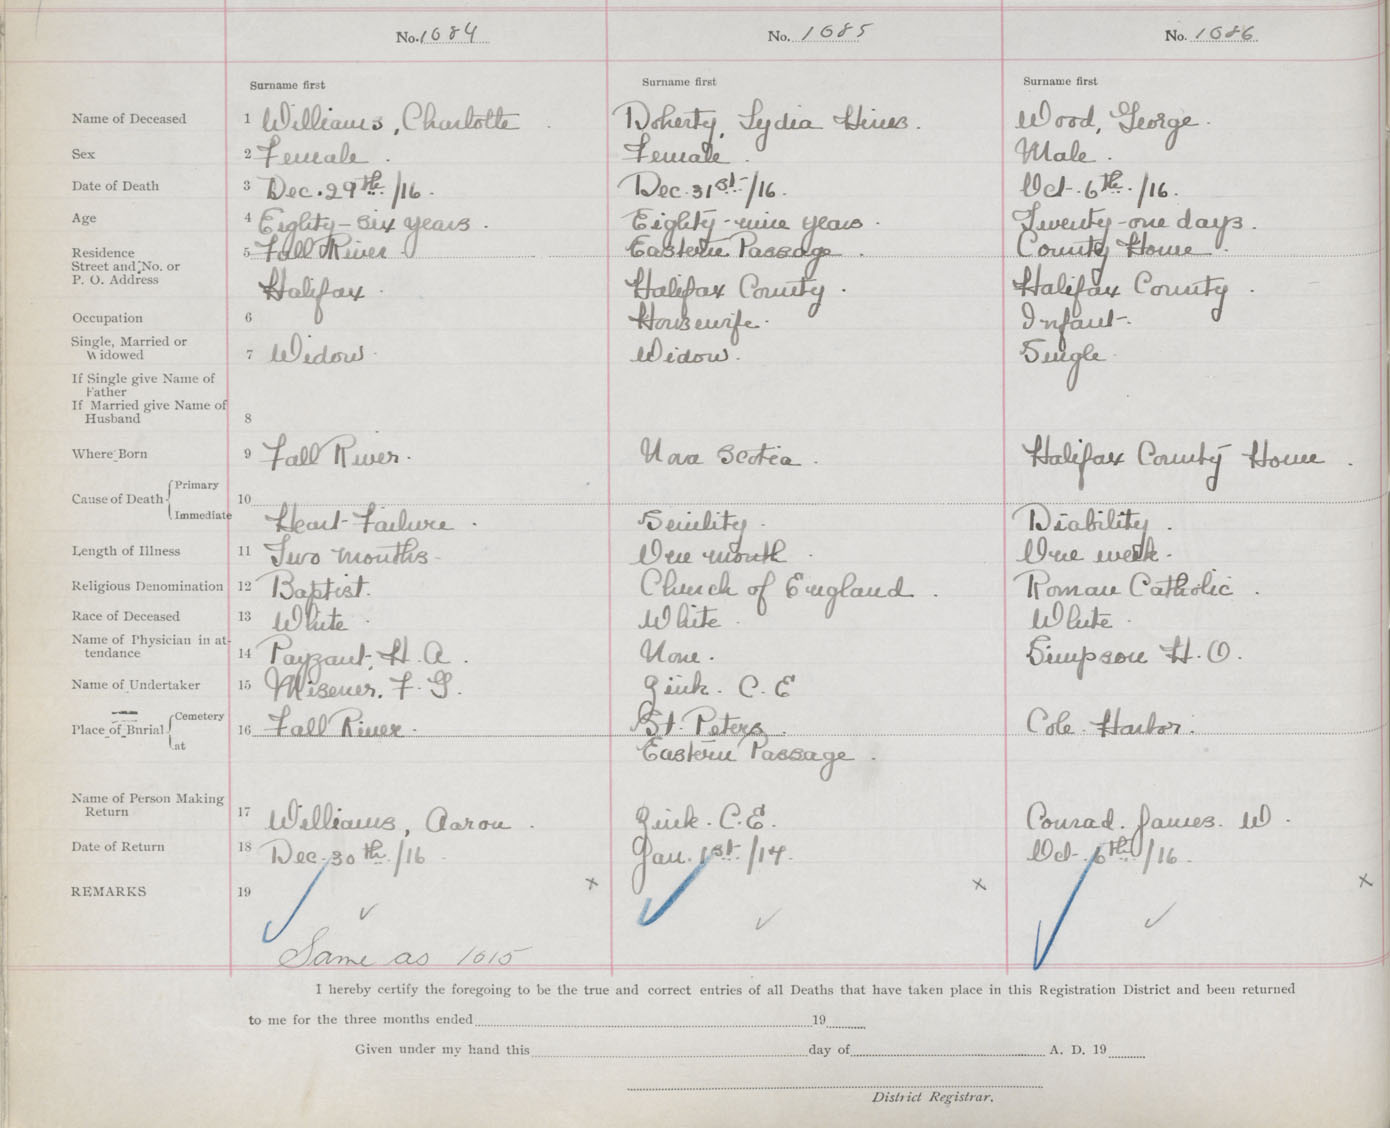 No. 1684 No. 1685 No. 1686
Surname first Surname first Surname first
Name of Deceased 1 Williams, Charlotte Doherty, Lydia Hines. Wood, George.
Sex 2 Female. Female. Male.
Date of Death 3 Dec. 29th/16. Dec. 31st/16. Oct. 6th./16.
Age 4 Eighty-six years. Eighty-nine years. Twenty-one days.
Residence 5 Fall River. Eastern Passage County Home.
Street and No. or
P. O. Address Halifax. Halifax County. Halifax County.
Occupation 6 Housewife. Infant.
Single, Married or
Widowed 7 Widow. Widow. Single
If Single give Name of
Father
If Married give Name of
Husband 8
Where Born 9 Fall River. Nova Scotia. Halifax County Home.
Cause of Death Primary 10
Immediate Heart Failure. Senility. Diability.
Length of Illness 11 Two months One month. One week.
Religious Denomination 12 Baptist. Church of England. Roman Catholic.
Race of Deceased 13 White. White. White.
Name of Physician in at-
tendance 14 Payzant, H. A. None. Simpson H. O.
Name of Undertaker 15 Misener, F. G. Zink. C. E
Place of Burial Cemetery 16 Fall River. St. Peters. Cole Harbor.
at Eastern Passage.
Name of Person Making
Return 17 Williams, Aaron. Zink. C. E. Conrad. James. W.
Date of Return 18 Dec. 30th./16 Jan. 1st./14. Oct. 6th/16.
REMARKS 19 x x x
Same as 1615
I hereby certify the foregoing to be the true and correct entries of all Deaths that have taken place in this Registration District and been returned
to me for the three months ended 19
Given under my hand this day of A. D. 19
District Registrar.